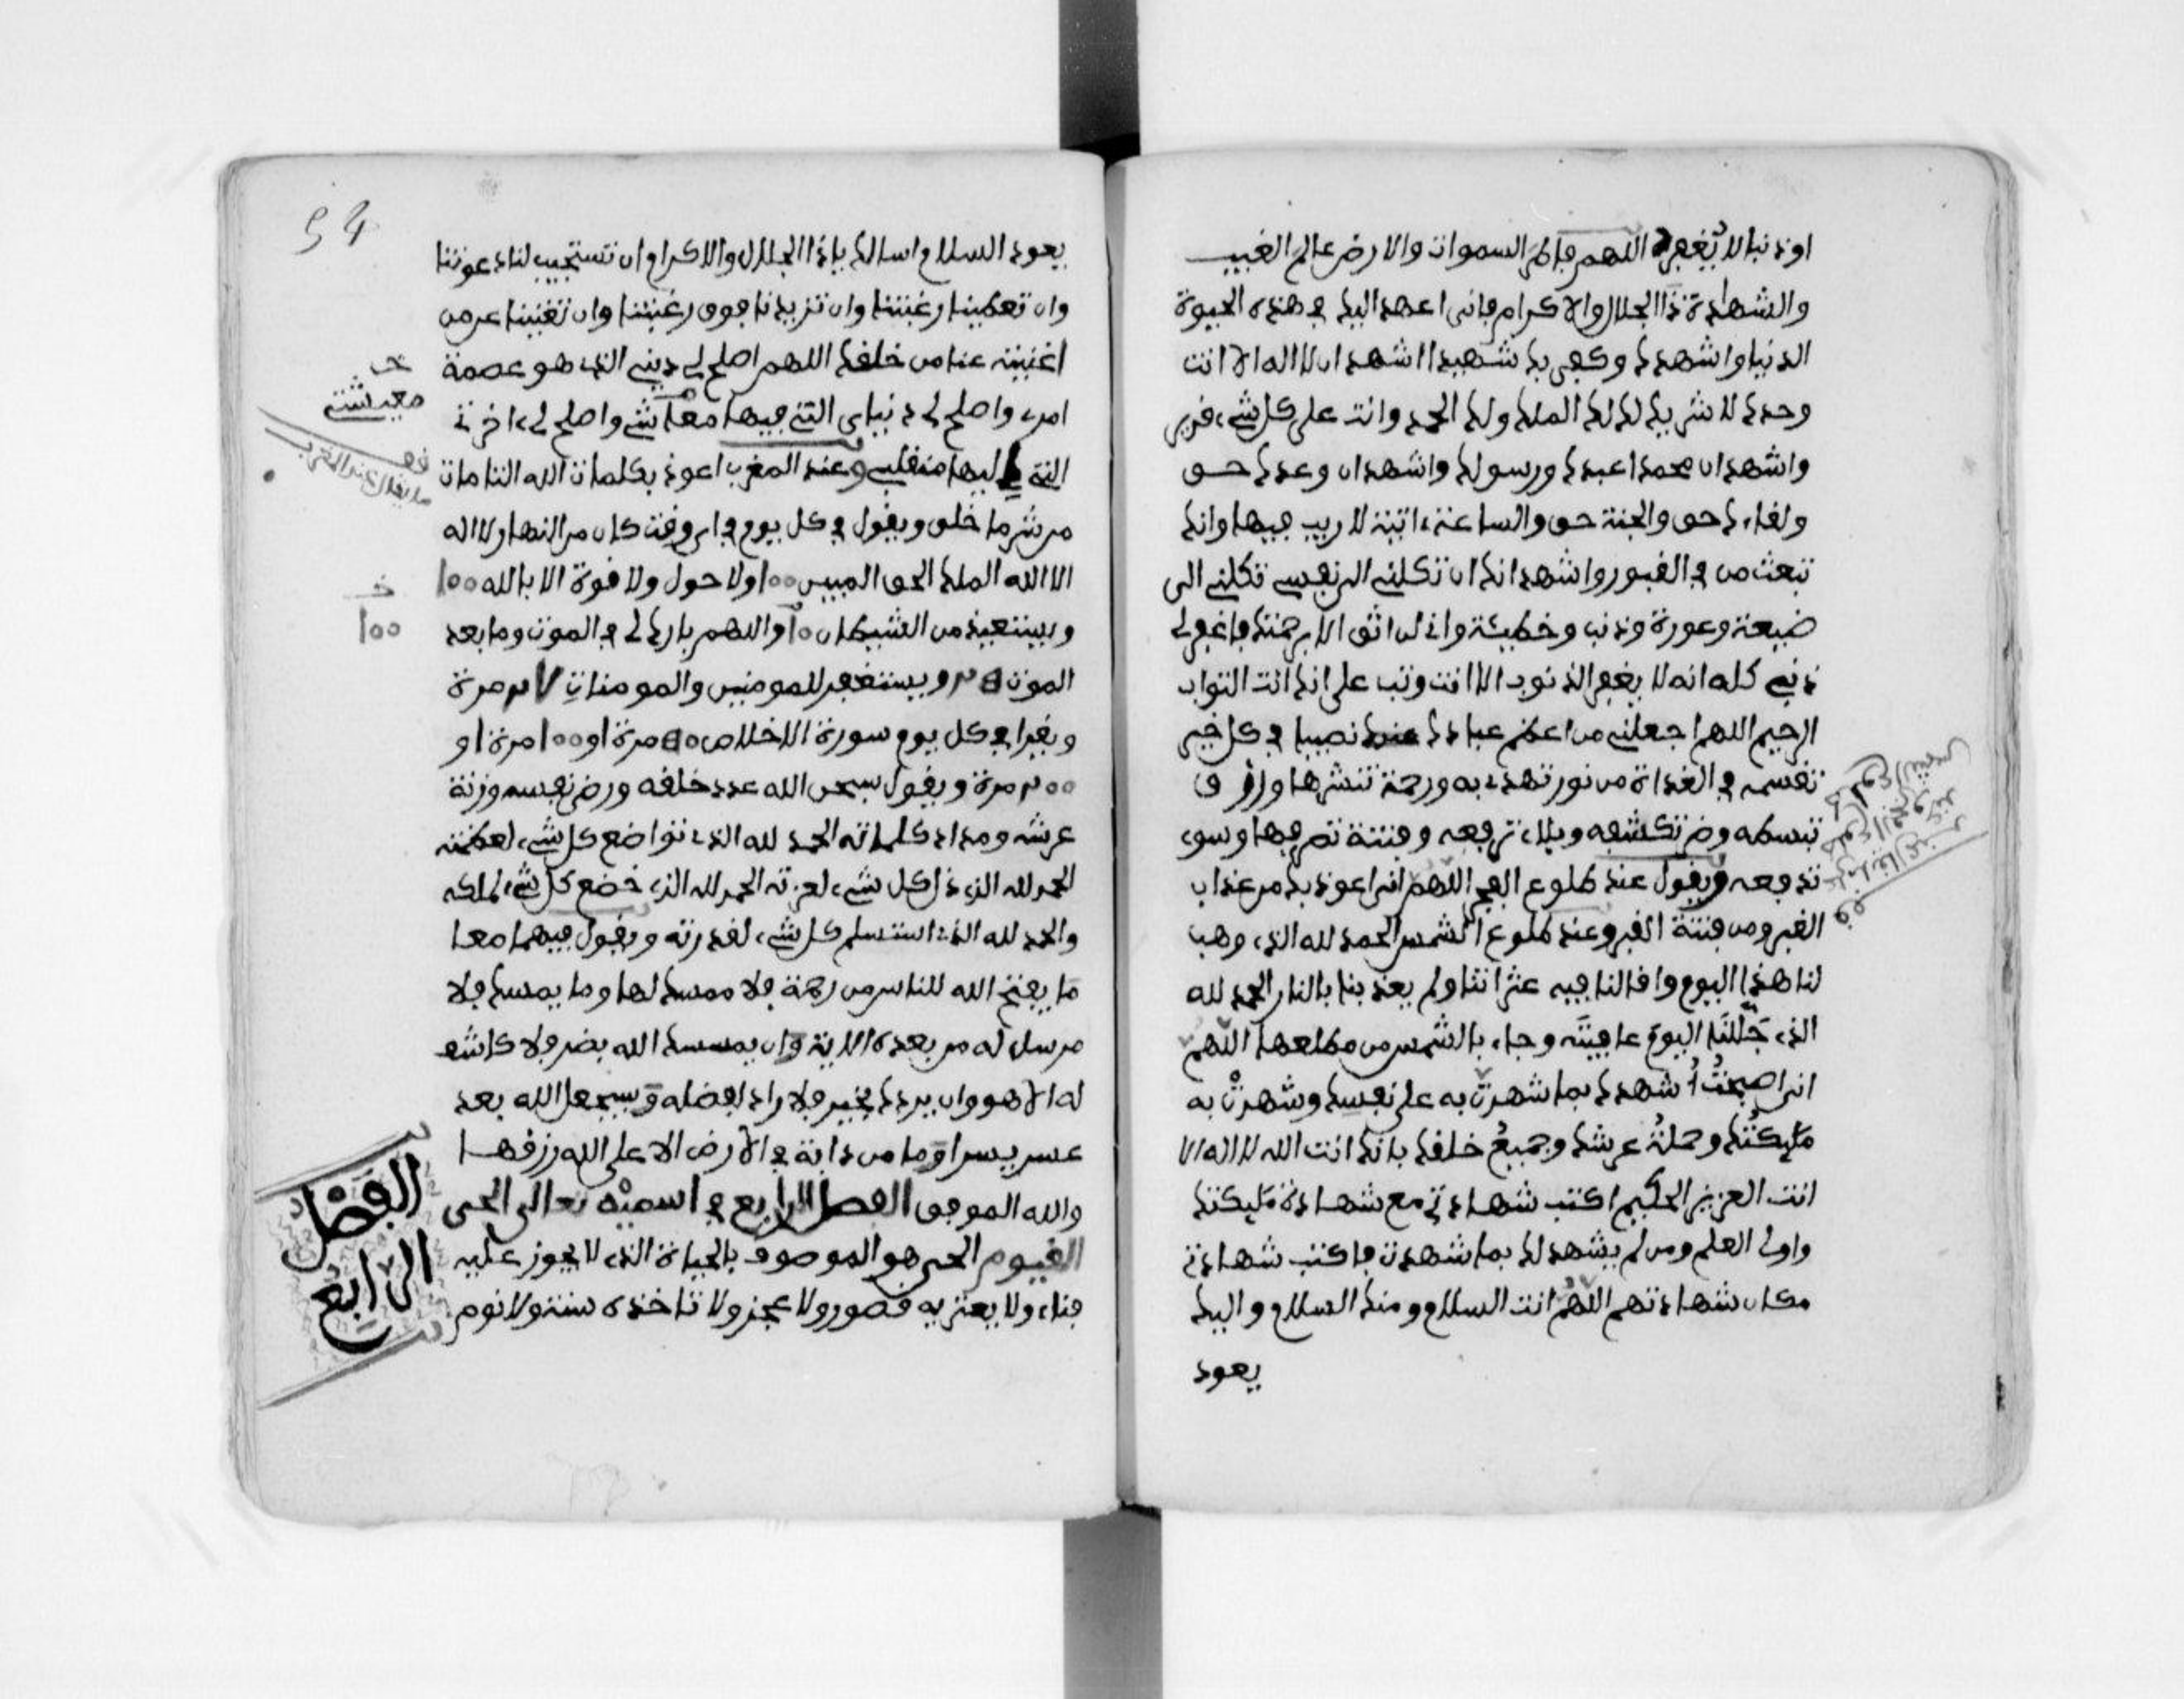 او ذنبا لا يغفر اللهم فاطر السموات والارض عالم الغيب
والشهادة ذا الجلال والاكرام فانى اعهد اليك في هذه الحيوة
الدنيا واشهدك وكفى بك شهيدا اشهد ان لا اله الا انت
وحدك لا شريك لك لك الملك ولك الحمد وانت على كل شيء قدير
واشهد ان محمدا عبدك ورسولك واشهد ان وعدك حق
ولقاءك حق والجنة حق والساعة ءاتية لا ريب فيها وانك
تبعث من في القبور واشهد انك ان تكلنى الى نفسى تكلنى الى
ضيعة وعورة وذنب وخطيئة وانى لن اثق الا برحمتك فاغفر لى
ذنبى كله انه لا يغفر الذنوب الا انت وتب على انك انت التواب
الرحيم اللهم اجعلنى من اعظم عبادك عندك نصيبا في كل خير
تقسمه في الغداة من نور تهدى به ورحمة تنشرها ورزق
تبسطه وضر تكشفه وبلاء ترفعه وفتنة تصرفها وسوء
تدفعه ويقول عند طلوع الفجر اللهم انى اعوذ بك من عذاب
القبر ومن فتنة القبر وعند طلوع الشمس الحمد لله الذى وهب
لنا هذا اليوم واقالنا فيه عثراتنا ولم يعذبنا بالنار الحمد لله
الذى جَلَّلَنَا اليومَ عافيتَه وجاء بالشمس من مطلعها اللهم
انى اصبحتُ أُشهدك بما شهدتَ به على نفسك وشهدتْ به
مليكتُك وحملةُ عرشك وجميعُ خلقك بانك انت الله لا اله الا
انت العزيز الحكيم اكتب شهادتى مع شهادة مليكتك
واولى العلم ومن لم يشهد لك بما شهدت فاكتب شهادتى
مكان شهادتهم اللهم انت السلام ومنك السلام واليك
يعود
ما يقال عند
طلوع الفجر وعند
طلوع الشمس
قف
54
يعود السلام اسالك ياذا الجلال والاكرام ان تستجيب لنا دعوتنا
وان تعطينا رغبتنا وان تزيدنا فوق رغبتنا وان تغنينا عن من
اغنيته عنا من خلقك اللهم اصلح لى دينى الذى هو عصمة
امرى واصلح لى دنياى التى فيها معاشى واصلح لى ءاخرتى
التى اليها منقلبى وعند المغرب اعوذ بكلمات الله التامات
من شر ما خلق ويقول في كل يوم في اي وقت كان من النهار لا اله
الا الله الملك الحق المبين 100 ولا حول ولا قوة الا بالله 100
ويستعيذ من الشيطان 10 واللهم بارك لى في الموت وما بعد
الموت ويستغفر للمومنين والمومنات مرة
ويقرا في كل يوم سورة الاخلاص مرة او 100 مرة او
مرة ويقول سبحن الله عدد خلقه ورضى نفسه وزنة
عرشه ومداد كلماته الحمد لله الذى تواضع كل شيء لعظمته
الحمد لله الذى ذل كل شيء لعزته الحمد لله الذى خضع كل شيء لملكه
والحمد لله الذى استسلم كل شيء لقدرته ويقول فيهما معا
ما يفتح الله للناس من رحمة فلا ممسك لها وما يمسك فلا
مرسل له من بعده الاية وان يمسسك الله بضر فلا كاشف
له الا هو وان يردك بخير فلا راد لفضله وسيجعل الله بعد
عسر يسرا وما من دابة في الارض الا على الله رزقها
والله الموفق الفصل الرابع في اسميه تعالى الحى
القيوم الحى هو الموصوف بالحياة الذى لا يجوز عليه
فناء ولا يعتريه قصور ولا عجز ولا تاخذه سنة ولا نوم
معيشتى
قف
ما يقال عند المغرب
100
الفصل
الرابع